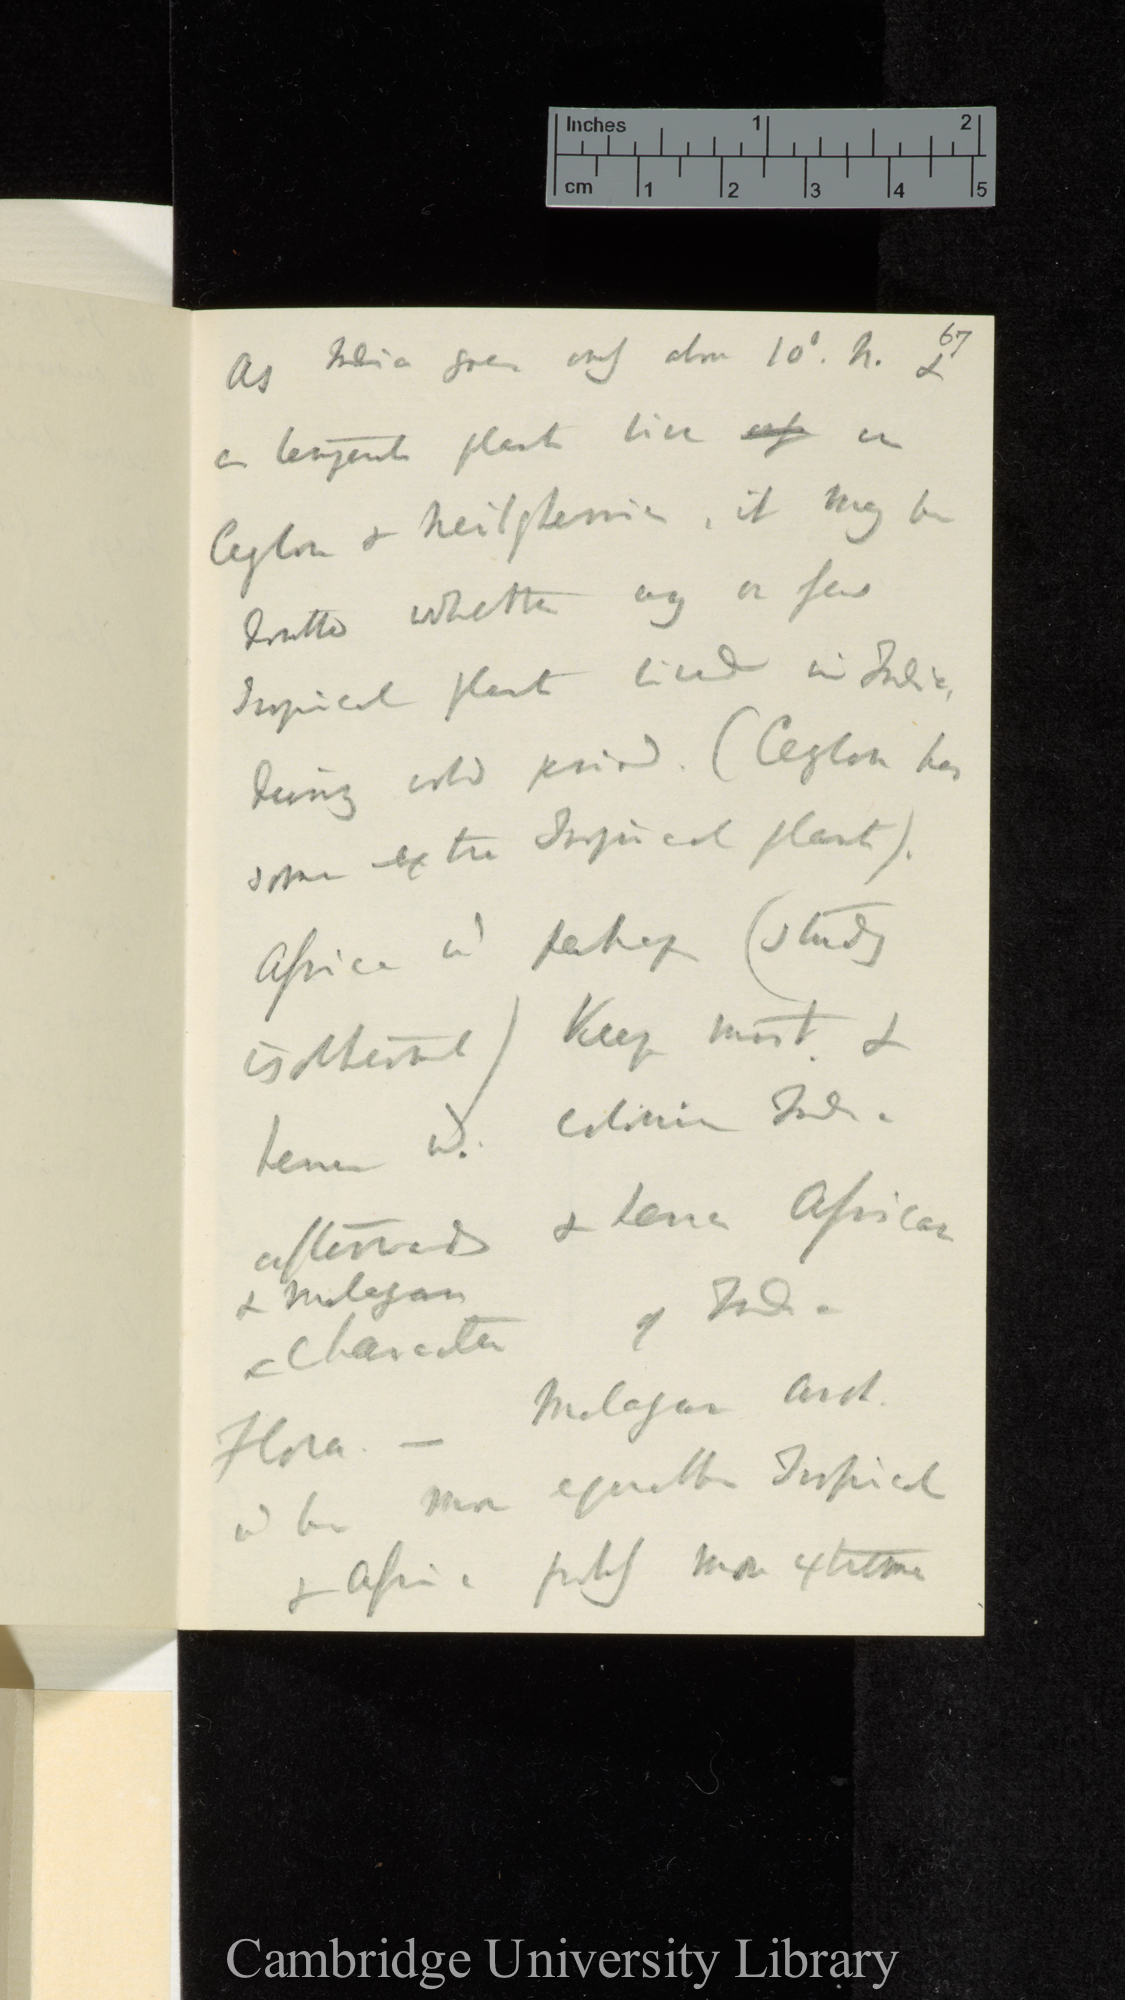 Inches 1 2
cm 1 2 3 4 5
67
As India goes only down 10°. N. &
as temperate plants live on
Ceylon & Neilgherries, it may be
doubted whether any or few
Tropical plants lived in India,
during cold period. (Ceylon has
some extra Tropical plants).
Africa wd perhaps (study
isothermals) keep most. &
hence wd. colonise India
afterwards & hence African
& Malayan
character of India
Flora. — Malayan arch.
wd be more equable Tropical
& Africa probly more extreme
Cambridge University Library